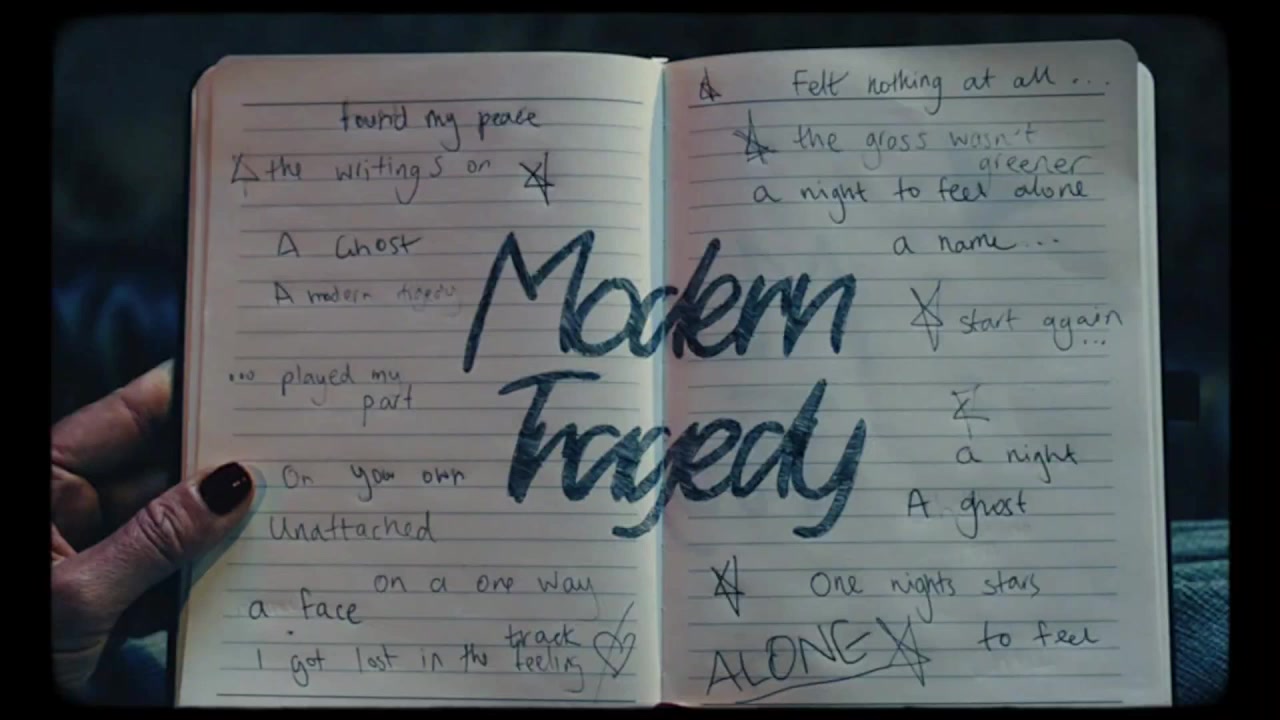 found my peace
the writing's on
A Ghost
A modern tragedy
... played my
part
On your own
Unattached
on a one way
a face
track
I got lost in the feeling
Modern
Tragedy
Felt nothing at all ...
the grass wasn't
greener
a night to feel alone
a name...
start again
...
a night
A ghost
One nights stars
to feel
ALONE